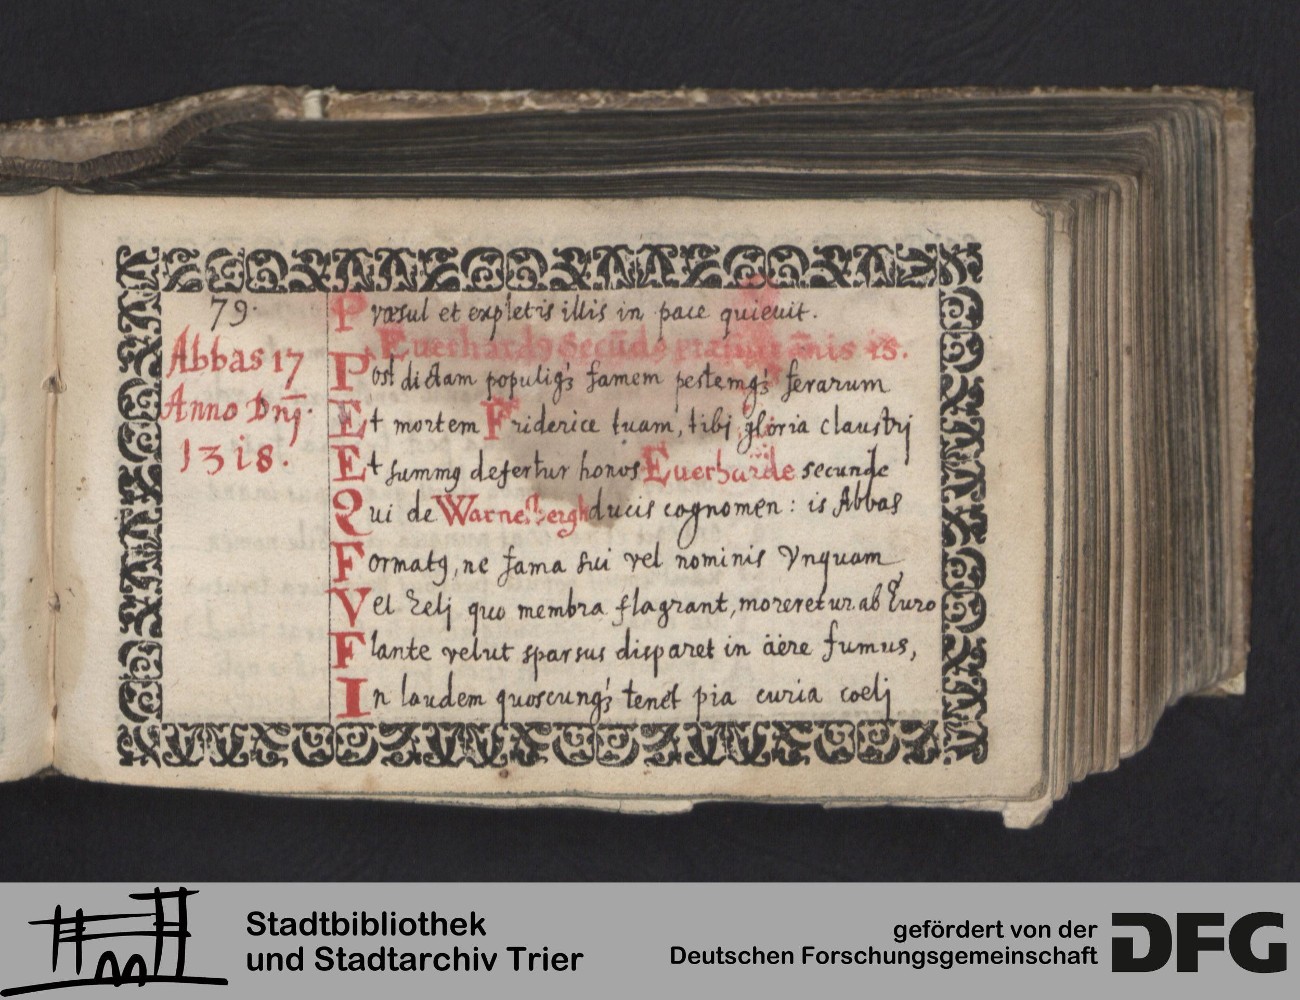 79.
Abbas 17
Anno Dnĩ.
1318.
Præsul et expletis illis in pace quieuit.
Euerhardꝰ Secũdꝰ ãnis is.
Post dictam populiq́ꝫ famem pestemq́ꝫ ferarum
Et mortem Friderice tuam, tibj gloria claustrj
Et summꝰ defertur honos Euerharde secunde
Qui de Warnesbergh ducis cognomen: is Abbas
Formatꝰ, ne fama sui vel nominis Vnquam
Vel Zelj quo membra flagrant, moreretur ab Euro
Flante velut sparsus disparet in äere fumus,
In laudem quoscunq́ꝫ tenet pia curia coelj
Stadtbibliothek
und Stadtarchiv Trier
gefördert von der
Deutschen Forschungsgemeinschaft
DFG